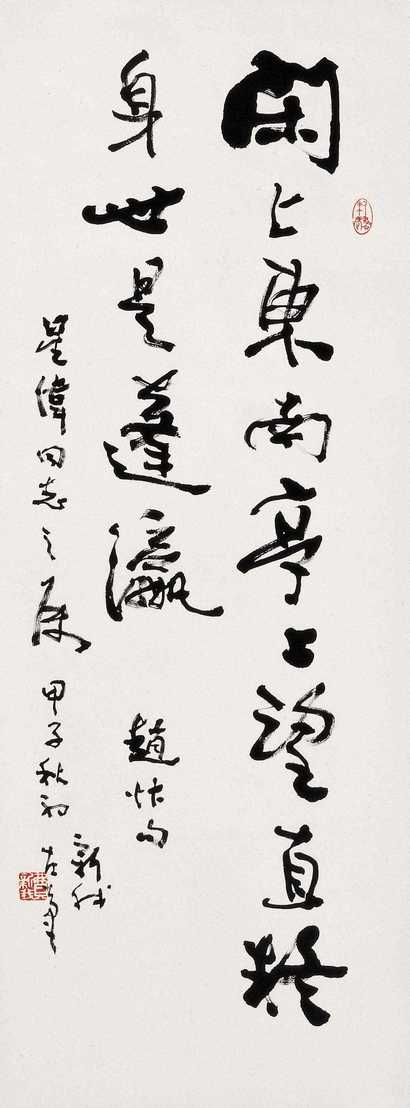 閑上東南亭上望直疑
身世是蓬瀛
趙忭句
星偉同志之屬
甲子秋初
新我左筆